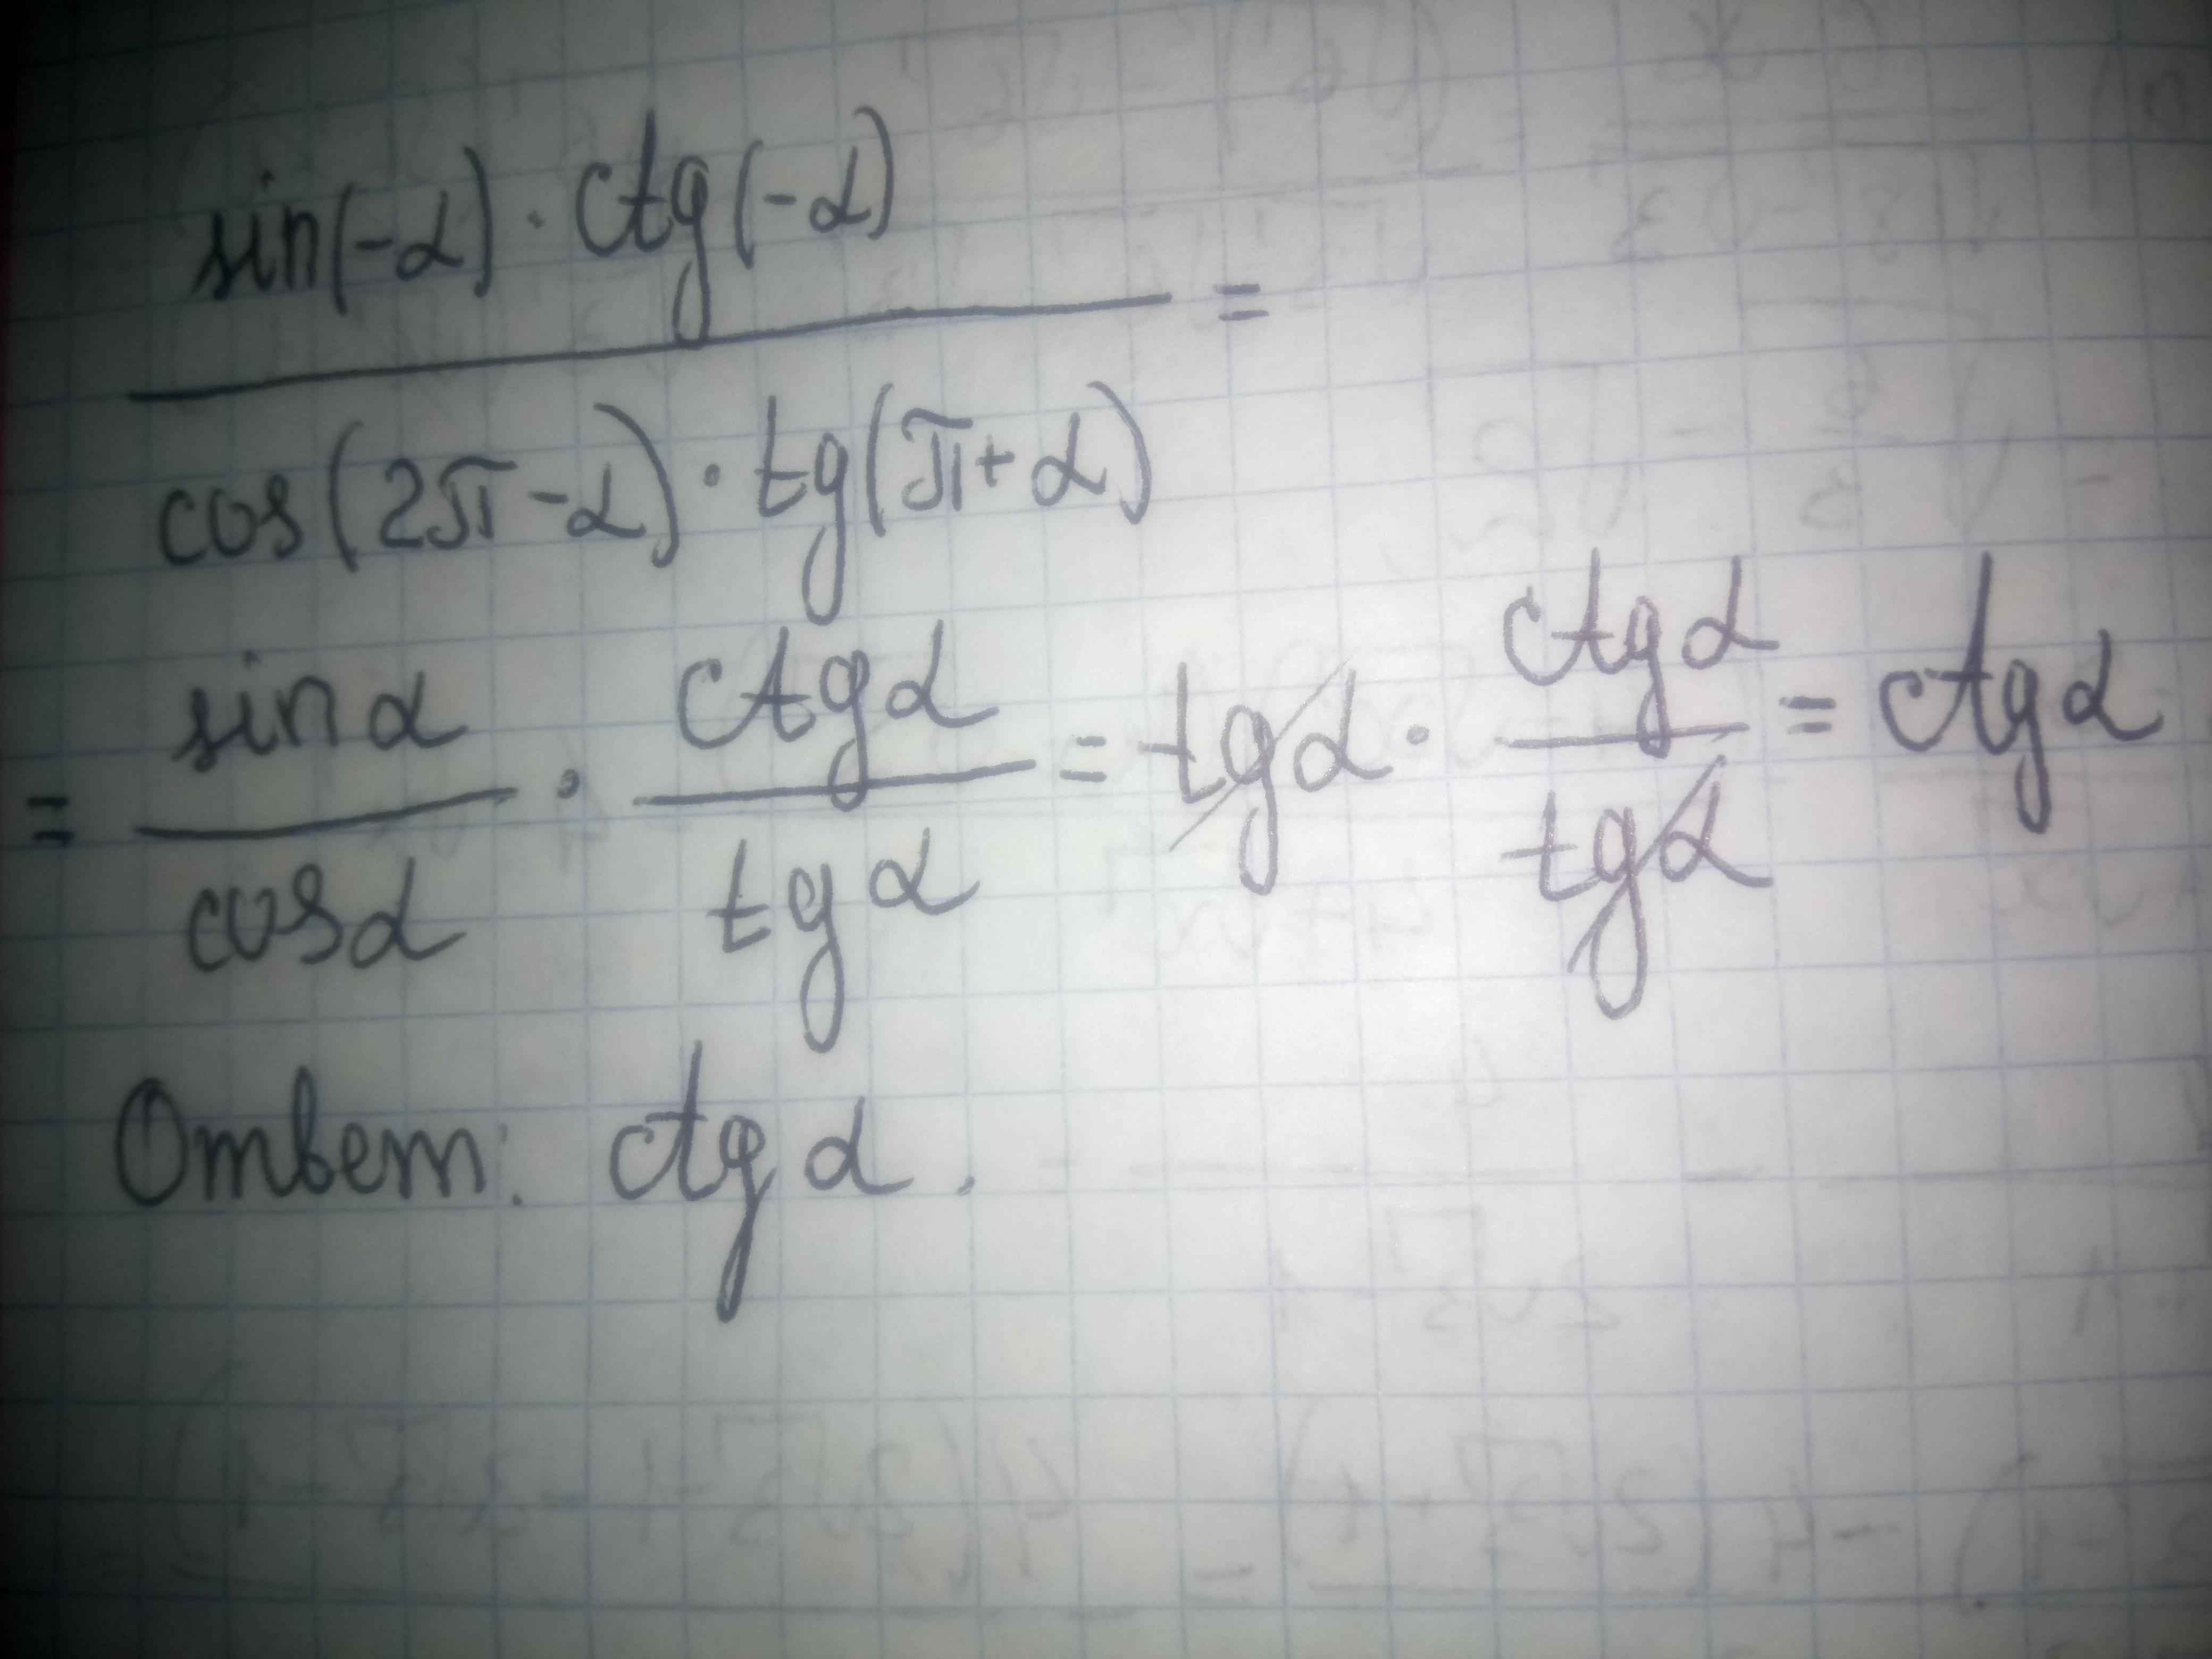 sin(-α) · ctg(-α)
=
cos(2π-α) · tg(π+α)
= sinα/cosα · ctgα/tgα = tgα · ctgα/tgα = ctgα
Ответ: ctgα.